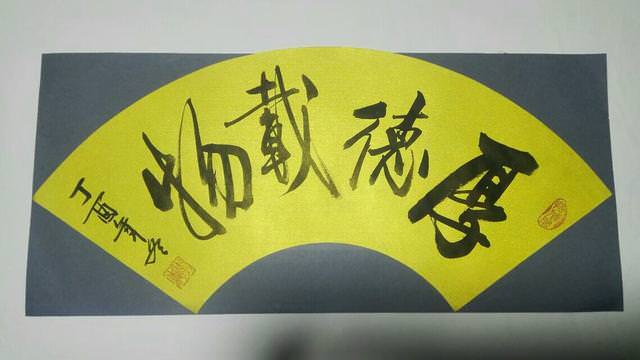 厚德載物
丁酉年冬